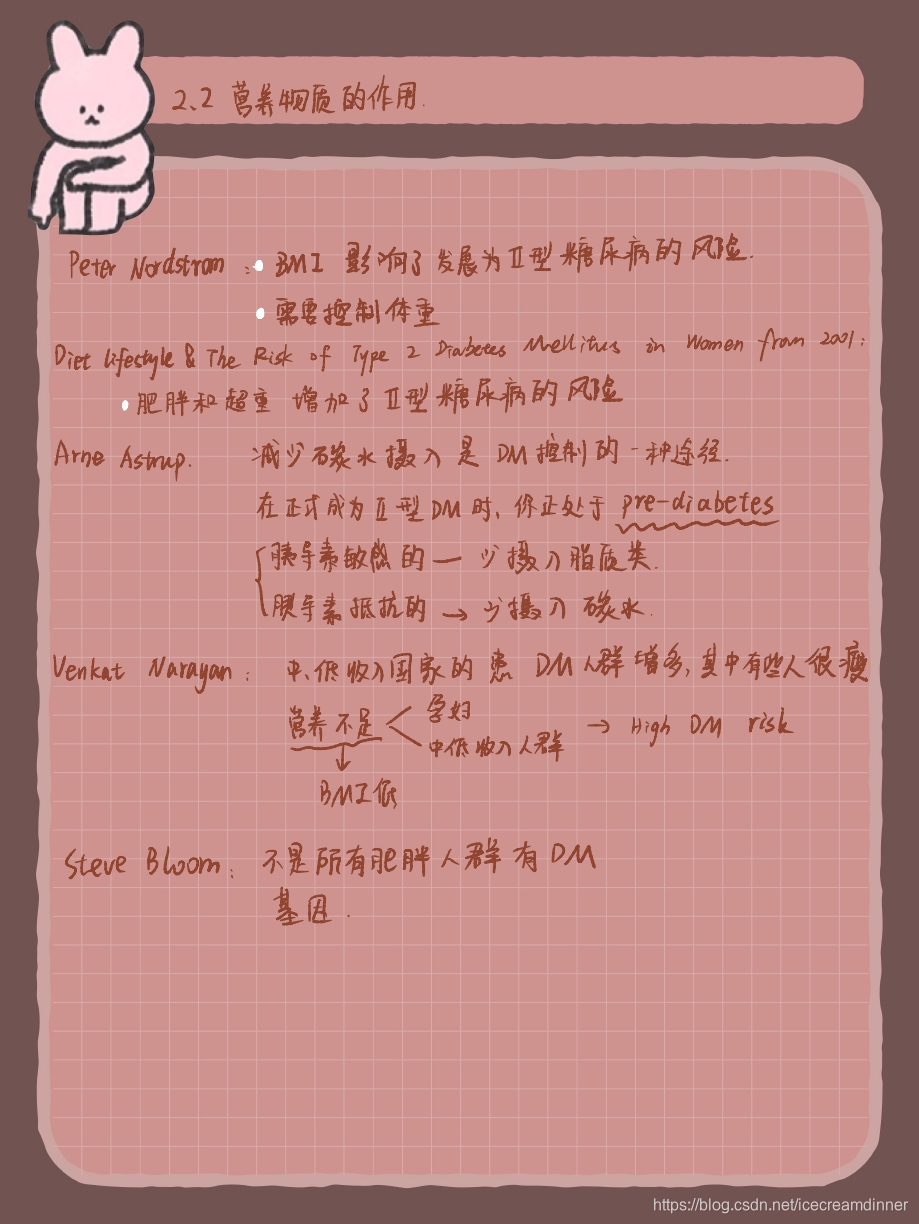 2.2 营养物质的作用.
Peter Nordstrom : • BMI 影响了发展为II型糖尿病的风险.
• 需要控制体重
Diet lifestyle & The Risk of Type 2 Diabetes Mellitus in Women from 2001:
• 肥胖和超重 增加了II型糖尿病的风险
Arne Astrup. 减少碳水摄入是 DM控制的一种途径.
在正式成为II型DM时、你正处于 pre-diabetes
胰导素敏感的 — 少摄入脂质类.
胰导素抵抗的 → 少摄入 碳水.
Venkat Narayan: 中、低收入国家的 患 DM人群增多, 其中有些人很瘦
孕妇
营养不足 → High DM risk
中低收入人群
↓
BMI低
Steve Bloom: 不是所有肥胖人群有DM
基因.
https://blog.csdn.net/icecreamdinner